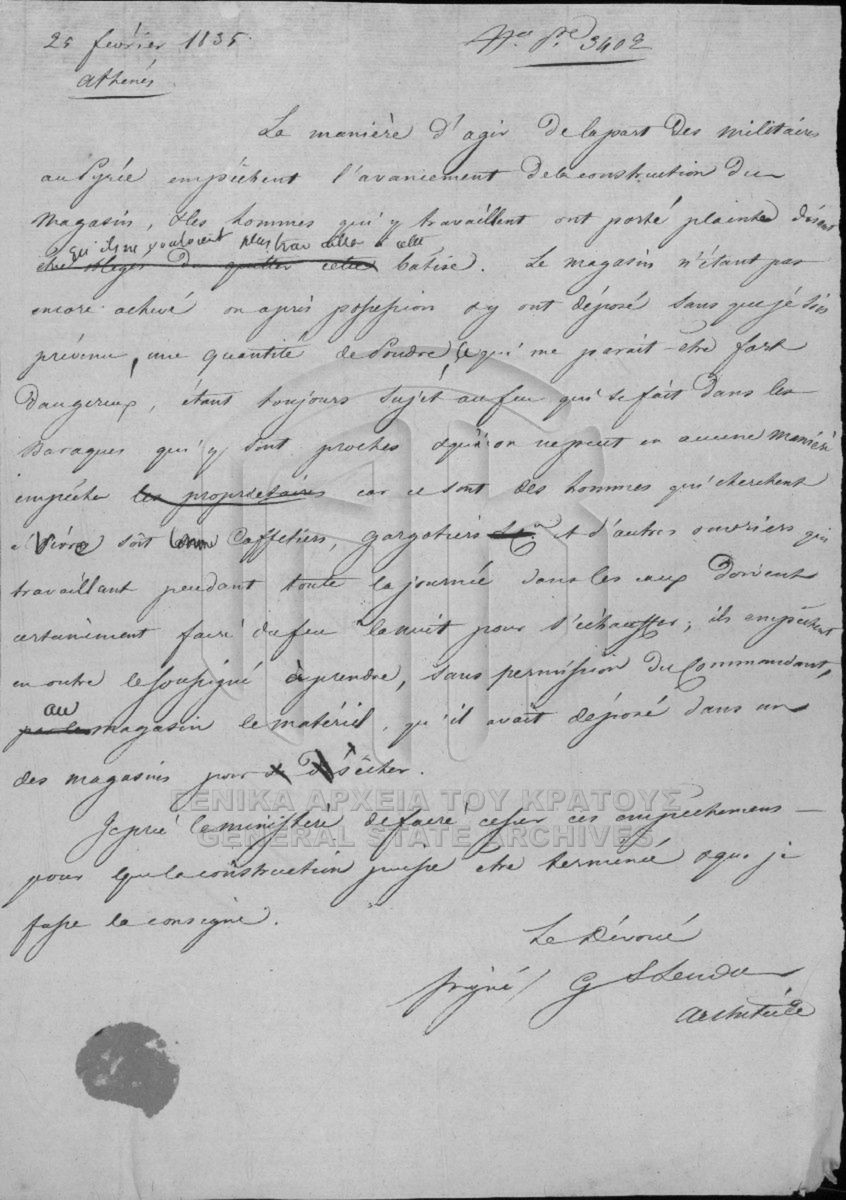 25 février 1835.
Athénes
3402
La manière d'agir de la part des militaires
au Pyrée empêchent l'avancement de la construction du
magasin, & les hommes qui y travaillent ont porté plainte disant
qu'ils ne vouloient plus travailler à cette
du quitter cette batise. Le magasin n'étant pas
encore achevé on a pris possession & y ont déposé sans que j'étois
prévenu, une quantité de Poudre, ce qui me parait être fort
dangereux, étant toujours sujet au feu qui se fait dans les
Baraques qui y sont proches & qu'on ne peut en aucune manière
empêcher les propriétaires car ce sont des hommes qui cherchent
à vivre soit comme Caffetiers, gargotiers et d'autres ouvriers qui
travaillant pendant toute la journée dans les eaux doivent
certainement faire du feu la nuit pour s'échauffer; ils empêchent
en outre le soussigné à prendre, sans permission du Commandant,
au
magasin le matériel, qu'il avait déposé dans un
des magasins pour sécher.
Je prie le ministère de faire cesser ces empêchemens
pour que la construction puisse etre terminée & que je
fasse la consigne.
Le Dévoué
signé/ G
Architècte
ΓΕΝΙΚΑ ΑΡΧΕΙΑ ΤΟΥ ΚΡΑΤΟΥΣ
GENERAL STATE ARCHIVES